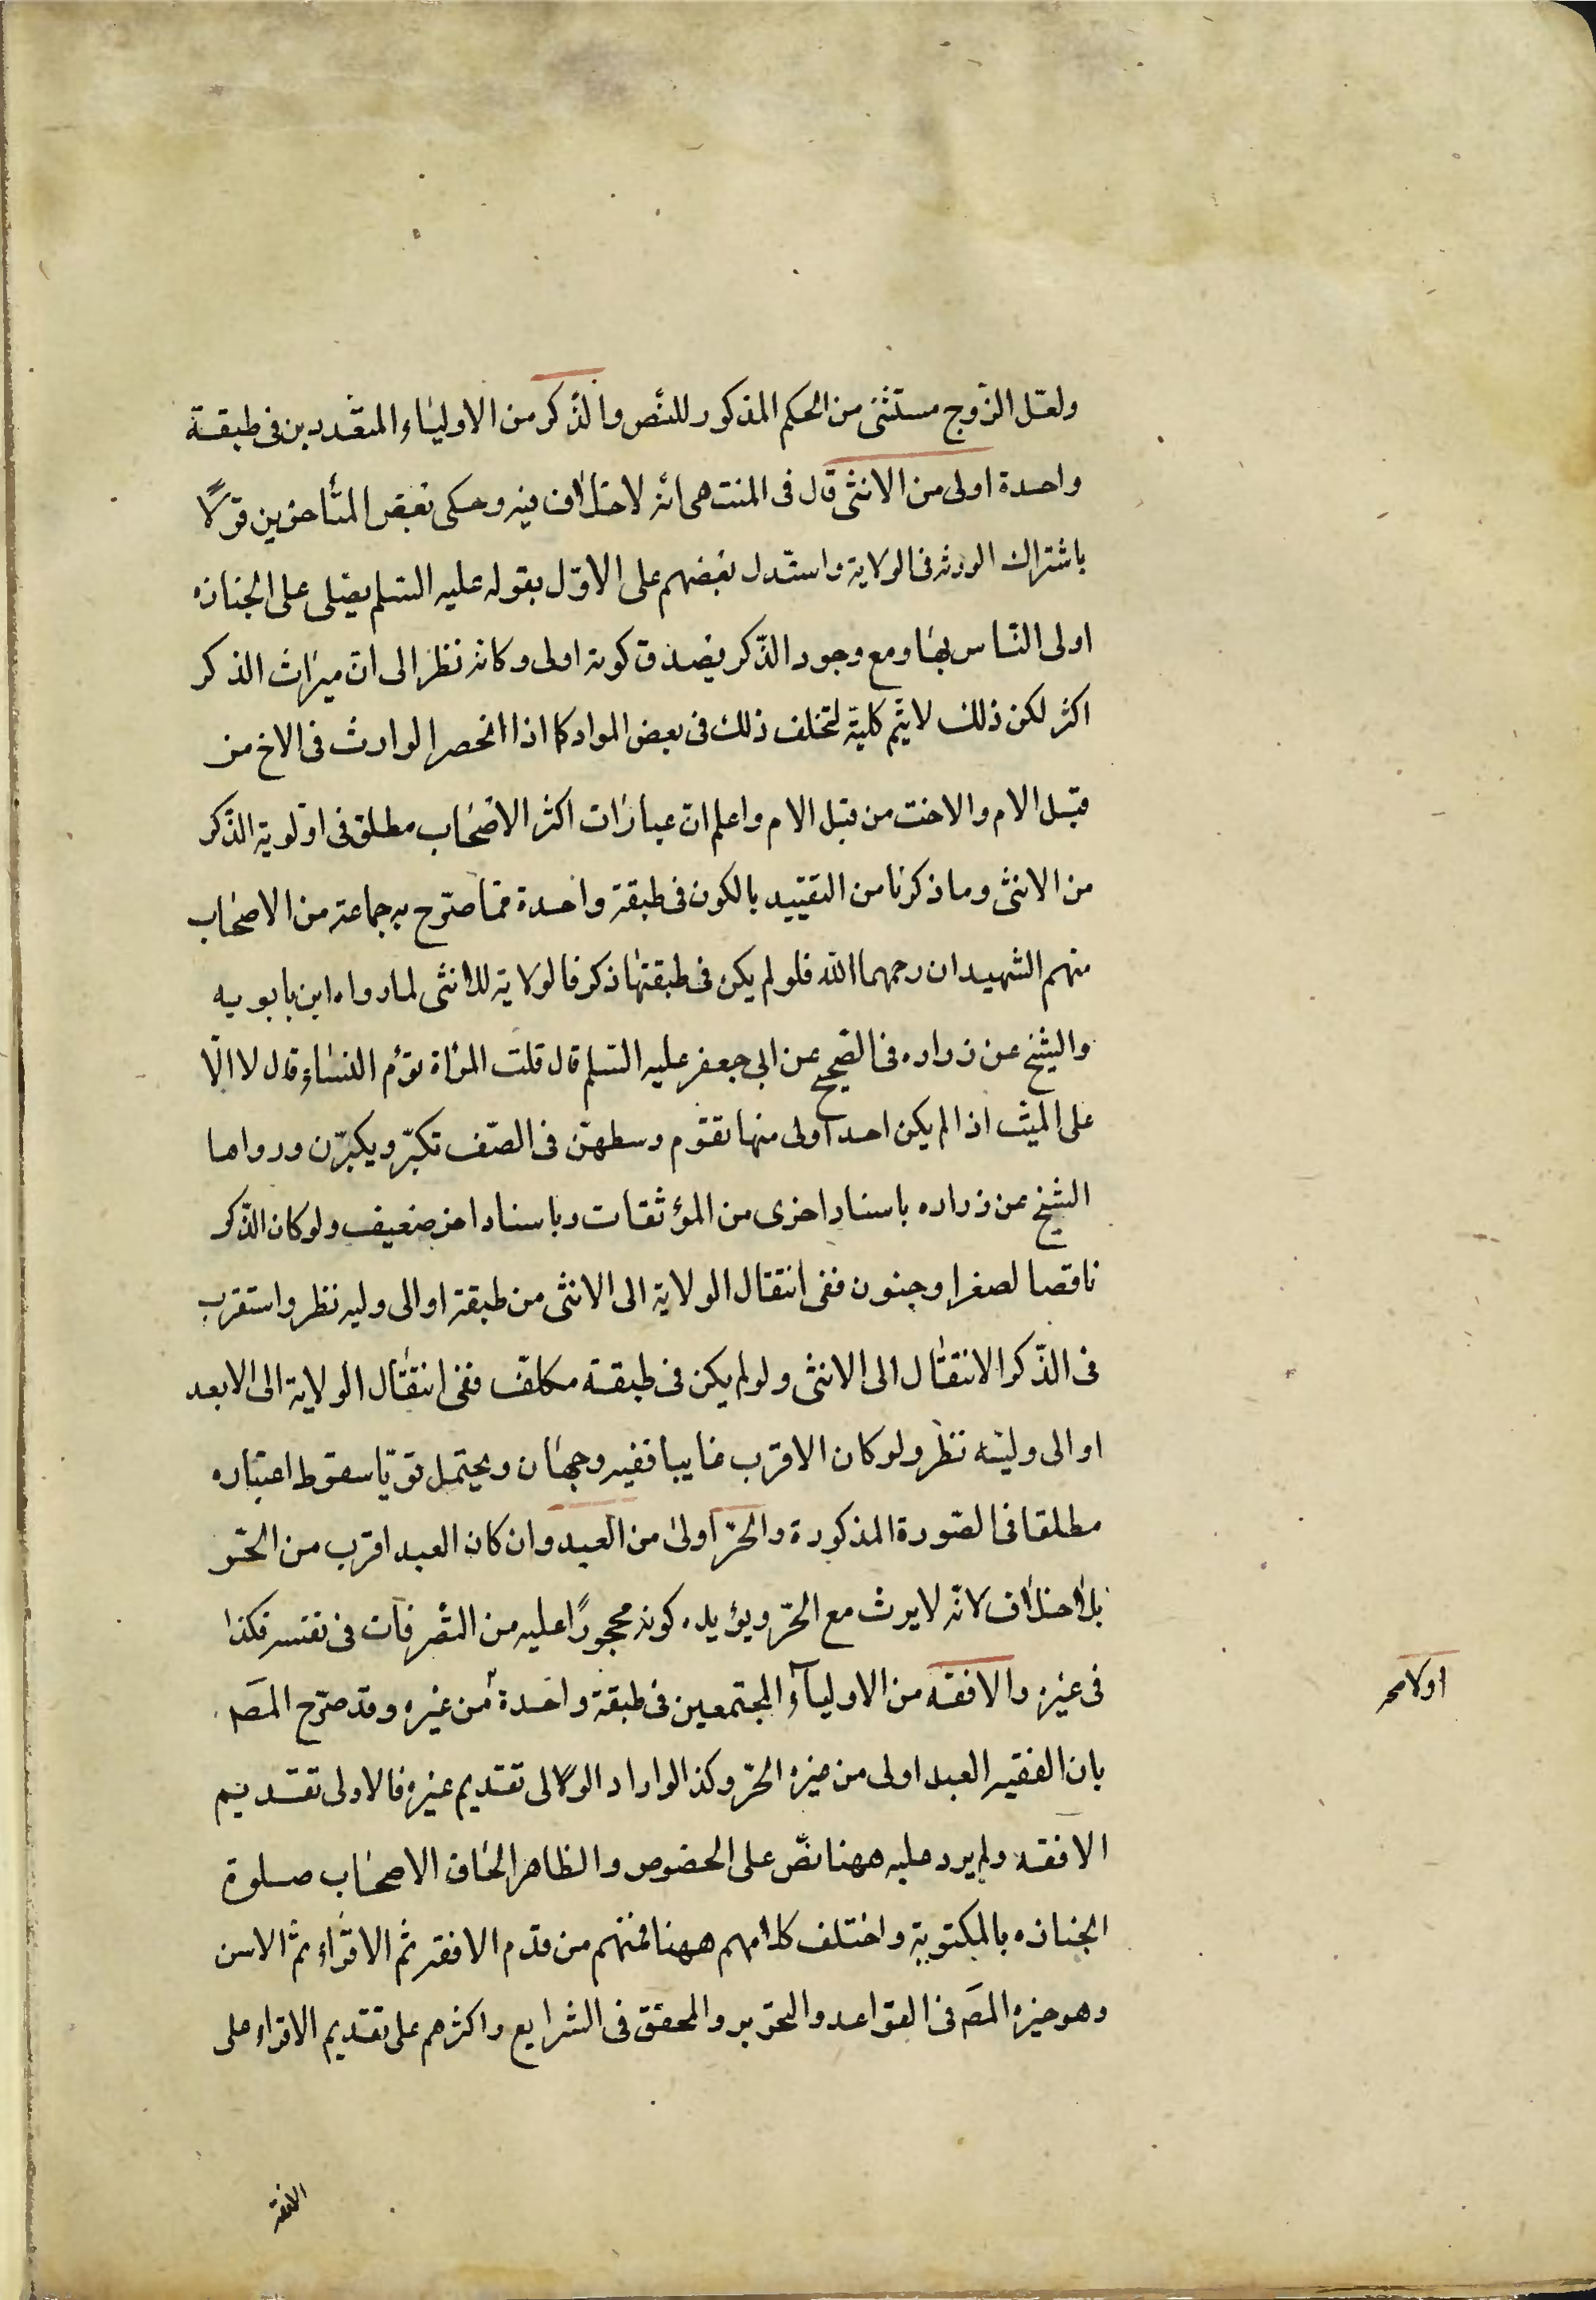 ولعل الزوج مستثنى من الحكم المذكور للنص والذكر من الاولياء المتعددين فى طبقة
واحدة اولى من الانثى قال فى المنتهى انه لا خلاف فيه وحكى بعض المتأخرين قولا
باشتراك الورثه فى الولاية واستدل بعضهم على الاول بقوله عليه السلم يصلى على الجنازه
اولى الناس بها ومع وجود الذكر يصدق كونه اولى وكانه نظر الى ان ميراث الذكر
اكثر لكن ذلك لا يتم كلية لتخلف ذلك فى بعض المواد كما اذا انحصر الوارث فى الاخ من
قبل الام والاخت من قبل الام واعلم ان عبارات اكثر الاصحاب مطلق فى اولوية الذكر
من الانثى وما ذكرنا من التقييد بالكون فى طبقة واحدة مما صرح به جماعة من الاصحاب
منهم الشهيدان رحمهما الله فلو لم يكن فى طبقتها ذكر فالولاية للانثى لما رواه ابن بابويه
والشيخ عن زراره فى الصحيح عن ابى جعفر عليه السلم قال قلت المرأة تؤم النساء قال لا الا
على الميت اذا لم يكن احد اولى منها تقوم وسطهن فى الصف تكبر ويكبرن ورواها
الشيخ عن زراره باسناد اخرى من الموثقات وباسناد اخر ضعيف ولو كان الذكر
ناقصا لصغر او جنون ففى انتقال الولاية الى الانثى من طبقة او الى وليه نظر واستقرب
فى الذكر الانتقال الى الانثى ولو لم يكن فى طبقة مكلف ففى انتقال الولاية الى الابعد
او الى وليه نظر ولو كان الاقرب غايبا ففيه وجهان ويحتمل قويا سقوط اعتباره
مطلقا فى الصورة المذكورة والحر اولى من العبد وان كان العبد اقرب من الحر
بلا خلاف لانه لا يرث مع الحر ويؤيده كونه محجورًا عليه من التصرفات فى نفسه فكذا
فى غيره والافقه من الاولياء المجتمعين فى طبقة واحدة من غيره وقد صرح المص
اولا مح
بان الفقير العبد اولى من غيره الحر وكذا لو اراد الولى تقديم غيره فالاولى تقديم
الافقه ولم يرد عليه ههنا نص على الخصوص والظاهر الحاق الاصحاب صلوة
الجنازه بالمكتوبة واختلف كلامهم ههنا فمنهم من قدم الافقه ثم الاقراء ثم الاسن
وهو خيره المص فى القواعد والتحرير والمحقق فى الشرايع واكثرهم على تقديم الاقراء على
الافقه